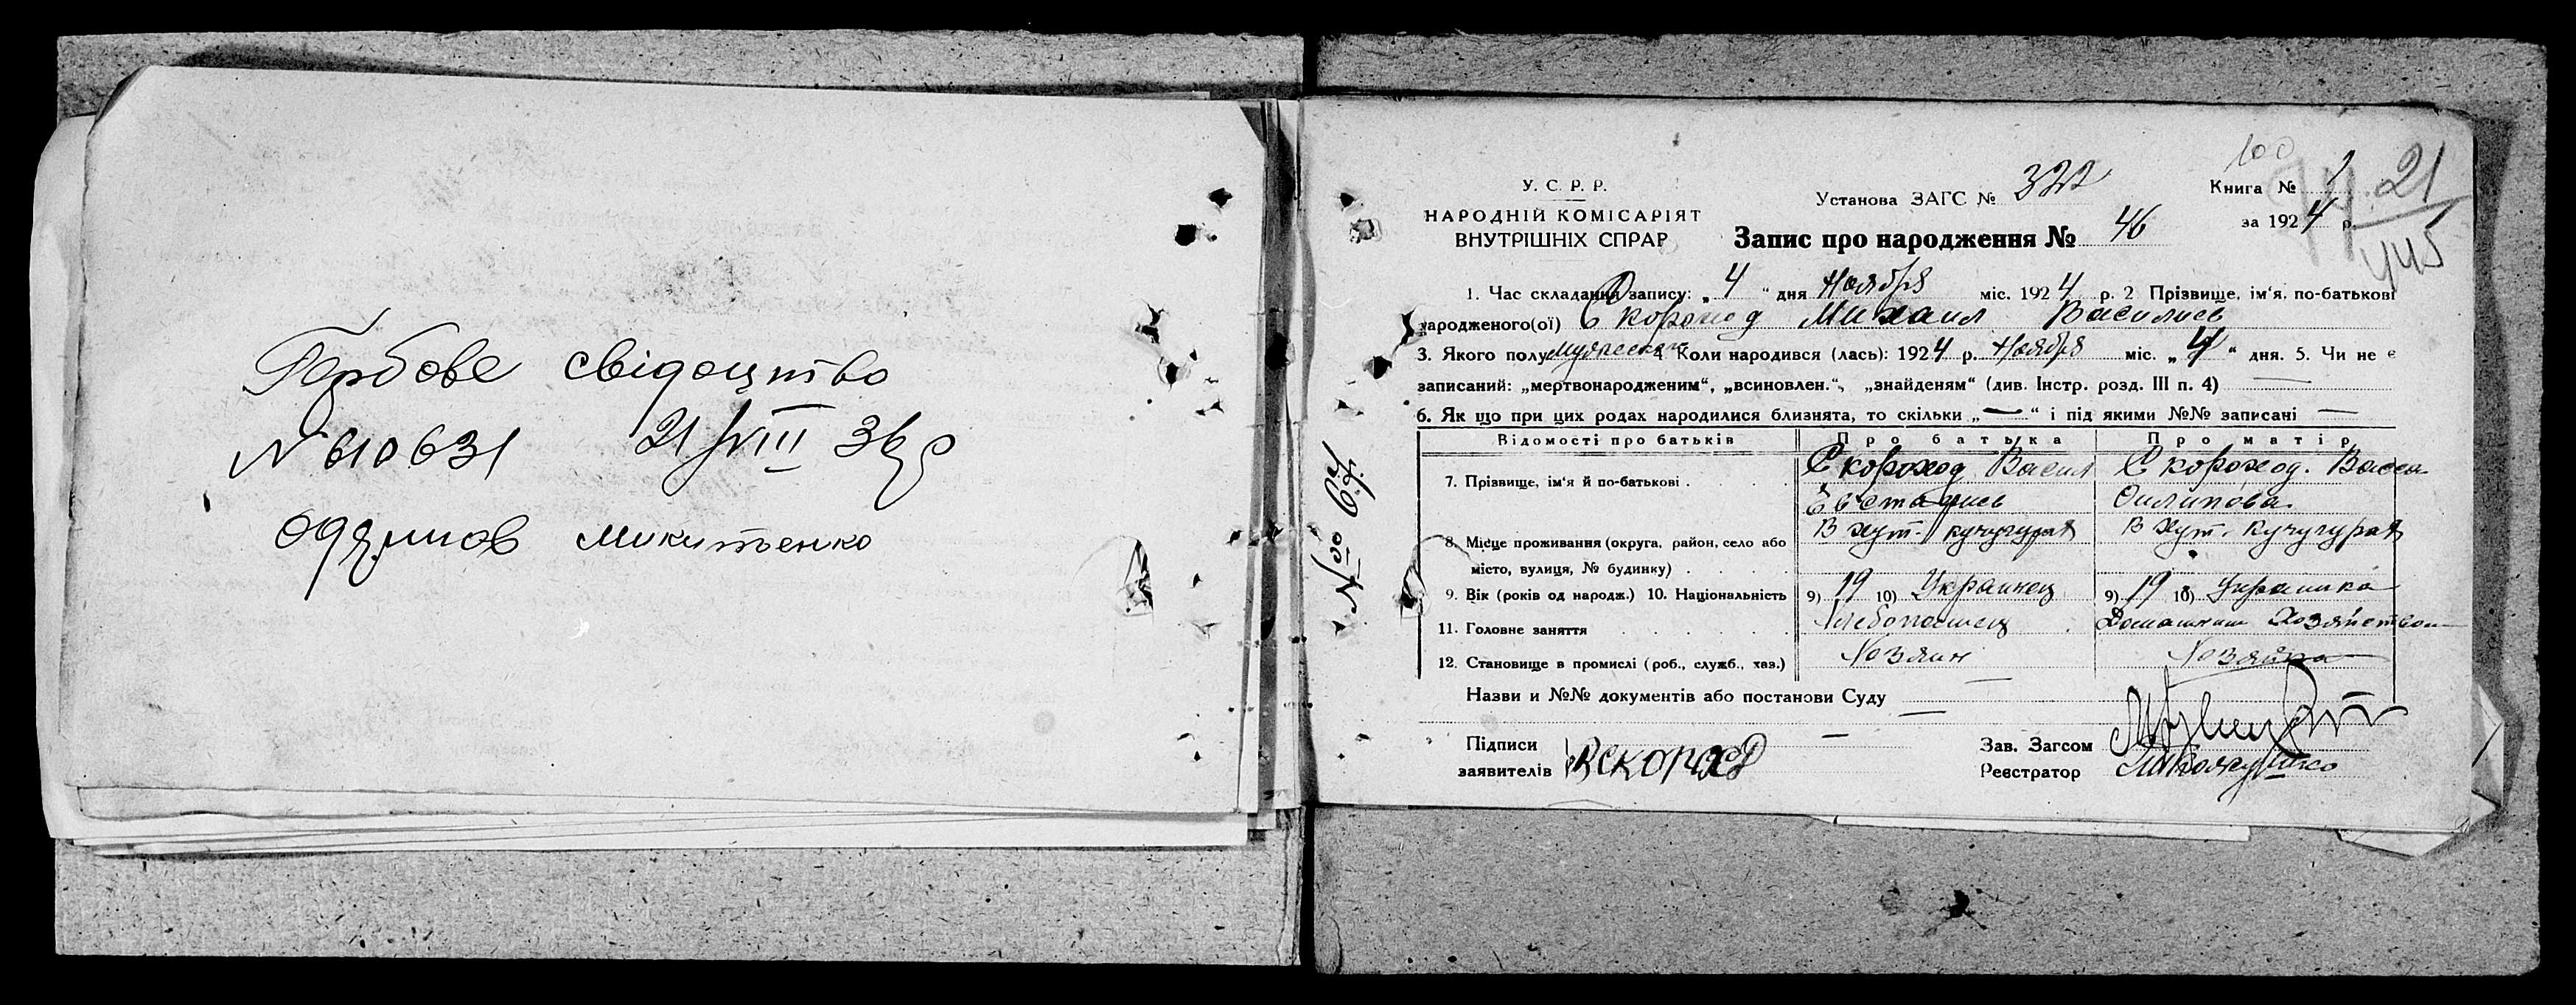 Гербове свідоцтво
N 610631 21/VIII 36 р
одержав Микитенко
У. С. Р. Р.
НАРОДНІЙ КОМІСАРІЯТ
ВНУТРІШНІХ СПРАР
Установа ЗАГС № 322
Запис про народження № 46
100
Книга № 1
за 1924 р.
21
445
1. Час складання запису: „4“ дня Ноября міс. 1924 р. 2 Прізвище, ім'я, по-батькові
народженого(ої) Скороход Михаил Василиев
3. Якого полу Мужеского 4. Коли народився (лась): 1924 р. Ноября міс. „4“ дня. 5. Чи не є
записаний: „мертвонародженим“, „всиновлен.“, „знайденям“ (див. Інстр. розд. III п. 4) —
6. Як що при цих родах народилися близнята, то скільки „—“ і під якими №№ записані —
Відомості про батьків Про батька Про матір
7. Прізвище, ім'я й по-батькові . Скороход Васил Скороход. Васса
Евстафиев Филипова
8. Місце проживання (округа, район, село або В хут. Кучугурах В хут. Кучугурах
місто, вулиця, № будинку)
9. Вік (років од народж.) 10. Національність 9) 19 10) Украинец 9) 19 10) Украинка
11. Головне заняття Хлебопашец Домашним Хозяйством
12. Становище в промислі (роб., служб., хаз.) Хозяин Хозяйка
Назви и №№ документів або постанови Суду —
Підписи
заявителів ВСКОРХОД
Зав. Загсом
Реєстратор
№ 00